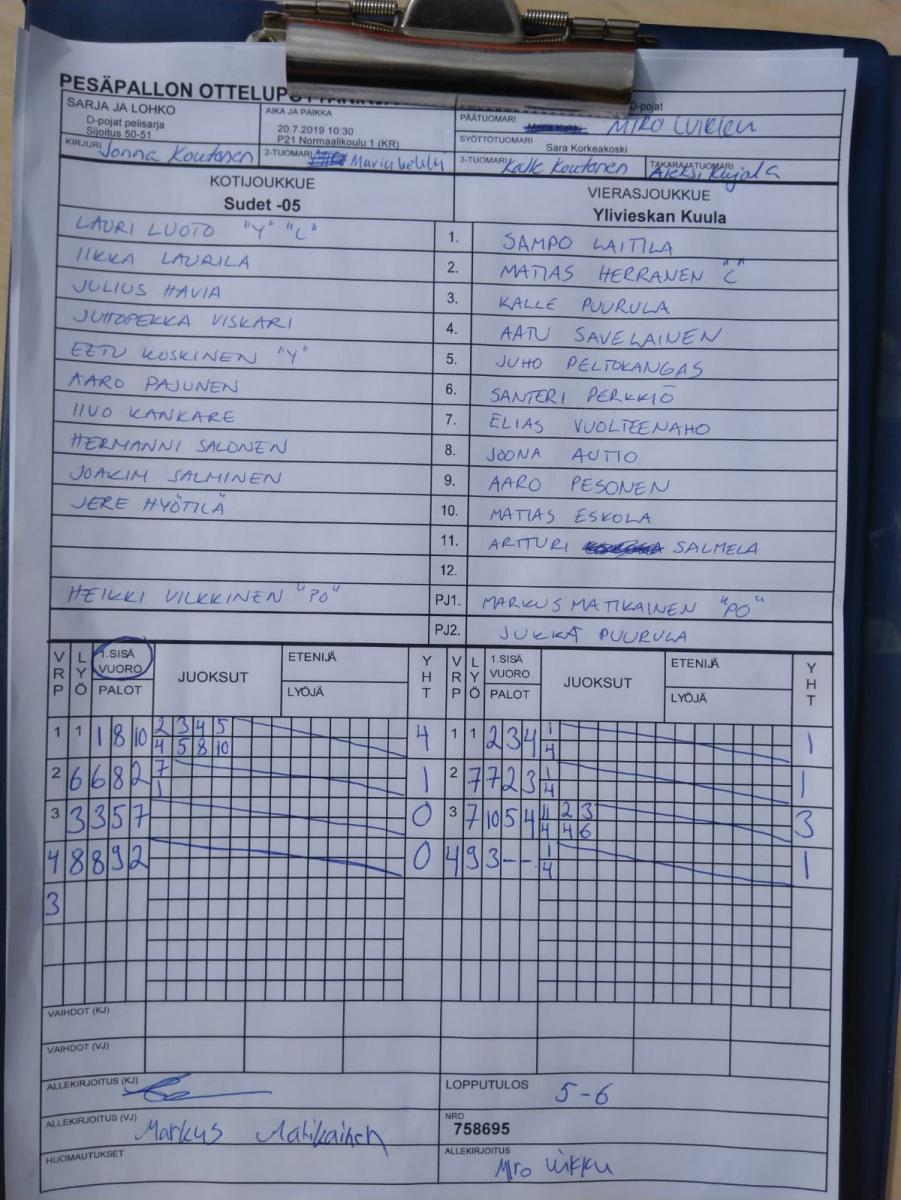 PESÄPALLON
SARJA JA LOHKO
D-pojat pelisarja
Sijoitus 50-51
AIKA JA PAIKKA
20.7.2019 10:30
P21 Normaalikoulu 1 (KR)
D-pojat
PÄÄTUOMARI
MIRO
SYÖTTÖTUOMARI
Sara Korkeakoski
KIRJURI Jonna Koutonen
2-TUOMARI
3-TUOMARI Kalle Koutonen
TAKARAJATUOMARI Aleksi Kujala
KOTIJOUKKUE
Sudet -05
VIERASJOUKKUE
Ylivieskan Kuula
LAURI LUOTO "Y" "C" 1. SAMPO LAITILA
IIKKA LAURILA 2. MATIAS HERRANEN "C"
JULIUS HAVIA 3. KALLE PUURULA
JUHOPEKKA VISKARI 4. AATU SAVELAINEN
EETU KOSKINEN "Y" 5. JUHO PELTOKANGAS
AARO PAJUNEN 6. SANTERI PERKKIÖ
IIVO KANKARE 7. ELIAS VUOLTEENAHO
HERMANNI SALONEN 8. JOONA AUTIO
JOAKIM SALMINEN 9. AARO PESONEN
JERE HYÖTILÄ 10. MATIAS ESKOLA
11. ARTTURI SALMELA
12.
HEIKKI VILKKINEN "PO" PJ1. MARKUS MATIKAINEN "PO"
PJ2. JUKKA PUURULA
VRP LYÖ 1.SISÄ VUORO PALOT JUOKSUT ETENIJÄ LYÖJÄ YHT VRP LYÖ 1.SISÄ VUORO PALOT JUOKSUT ETENIJÄ LYÖJÄ YHT
1 1 1 8 10 2 3 4 5 4 1 1 2 3 4 1 1
4 5 8 10 4
2 6 6 8 2 7 1 2 7 7 2 3 1 1
1 4
3 3 3 5 7 0 3 7 10 5 4 11 2 3 3
4 4 6
4 8 8 9 2 0 4 9 3 - - 1 1
4
3
VAIHDOT (KJ)
VAIHDOT (VJ)
ALLEKIRJOITUS (KJ)
LOPPUTULOS 5-6
ALLEKIRJOITUS (VJ) Markus Matikainen
NRO
758695
HUOMAUTUKSET
ALLEKIRJOITUS Miro